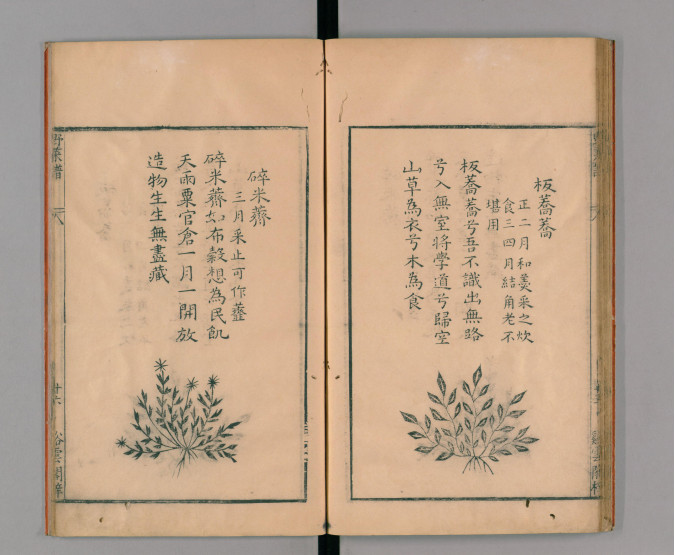 板蕎蕎
正二月和羹采之炊
食三四月結角老不
堪用
板蕎蕎兮吾不識出無路
兮入無室將學道兮歸空
山草為衣兮木為食
碎米薺
三月采止可作虀
碎米薺如布穀想為民飢
天雨粟官倉一月一開放
造物生生無盡藏
野菜譜
十六
谿雲閣梓